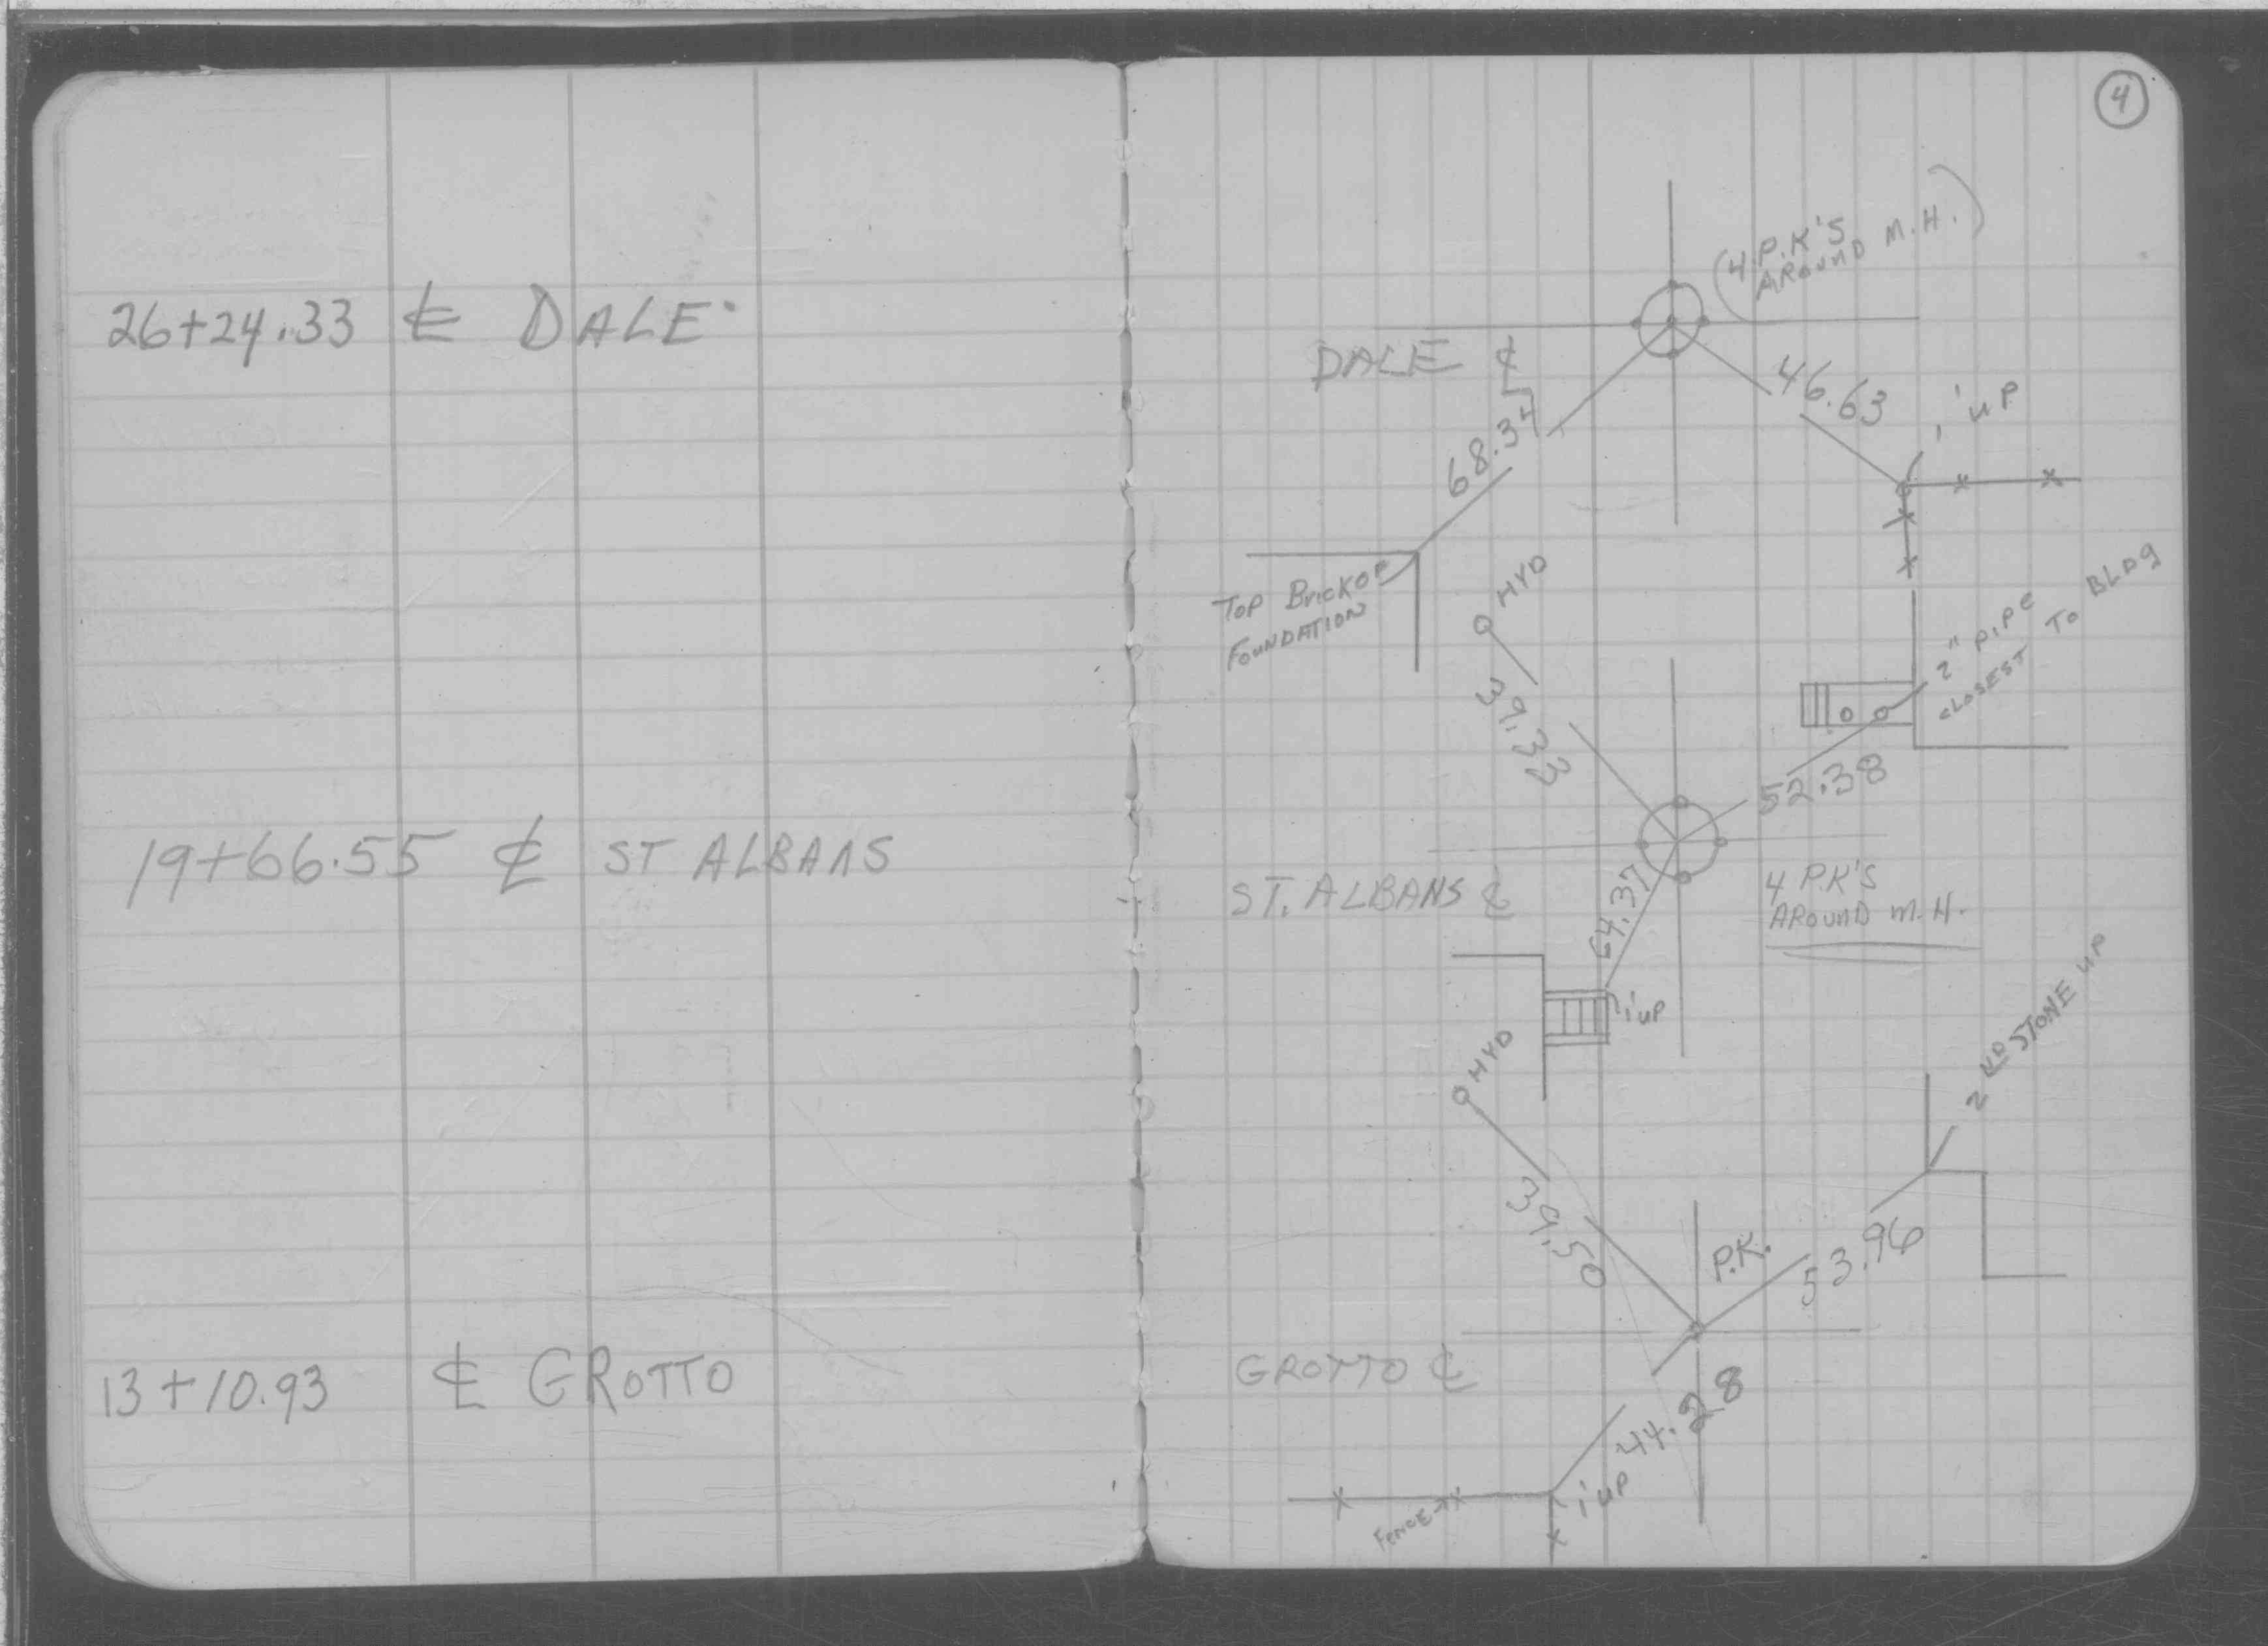 26+24.33 ℄ DALE
19+66.55 ℄ ST ALBANS
13+10.93 ℄ GROTTO
4
(4 P.K'S
AROUND M.H.)
DALE ℄
46.63
1' UP
68.37
TOP BRICK OF
FOUNDATION
HYD
39.33
2" PIPE
CLOSEST TO BLDG
52.38
ST. ALBANS ℄
64.37
4 P.K'S
AROUND M.H.
1' UP
HYD
2ND STONE UP
39.50
P.K.
53.96
GROTTO ℄
44.28
1' UP
FENCE